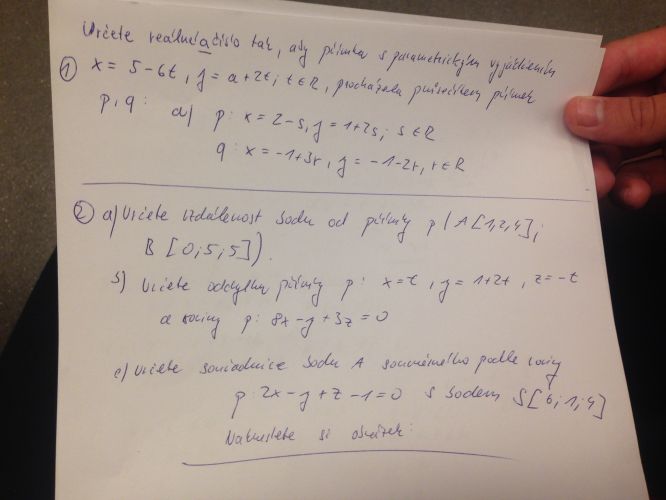 Určete reálné číslo tak, aby přímka s parametrickým vyjádřením
① x = 5-6t, y = a+2t; t∈R, procházela průsečíkem přímek
p, q: a) p: x = 2-s, y = 1+2s; s∈R
q: x = -1+3r, y = -1-2r, r∈R
② a) Určete vzdálenost bodu od přímky p (A[1,2,4];
B [0;5;5]).
b) Určete odchylku přímky p: x=t, y = 1+2t, z=-t
a roviny p: 8x-y+3z=0
c) Určete souřadnice bodu A souměrného podle roviny
p: 2x-y+z-1=0 s bodem S[6;1;4]
Nakreslete si obrázek.